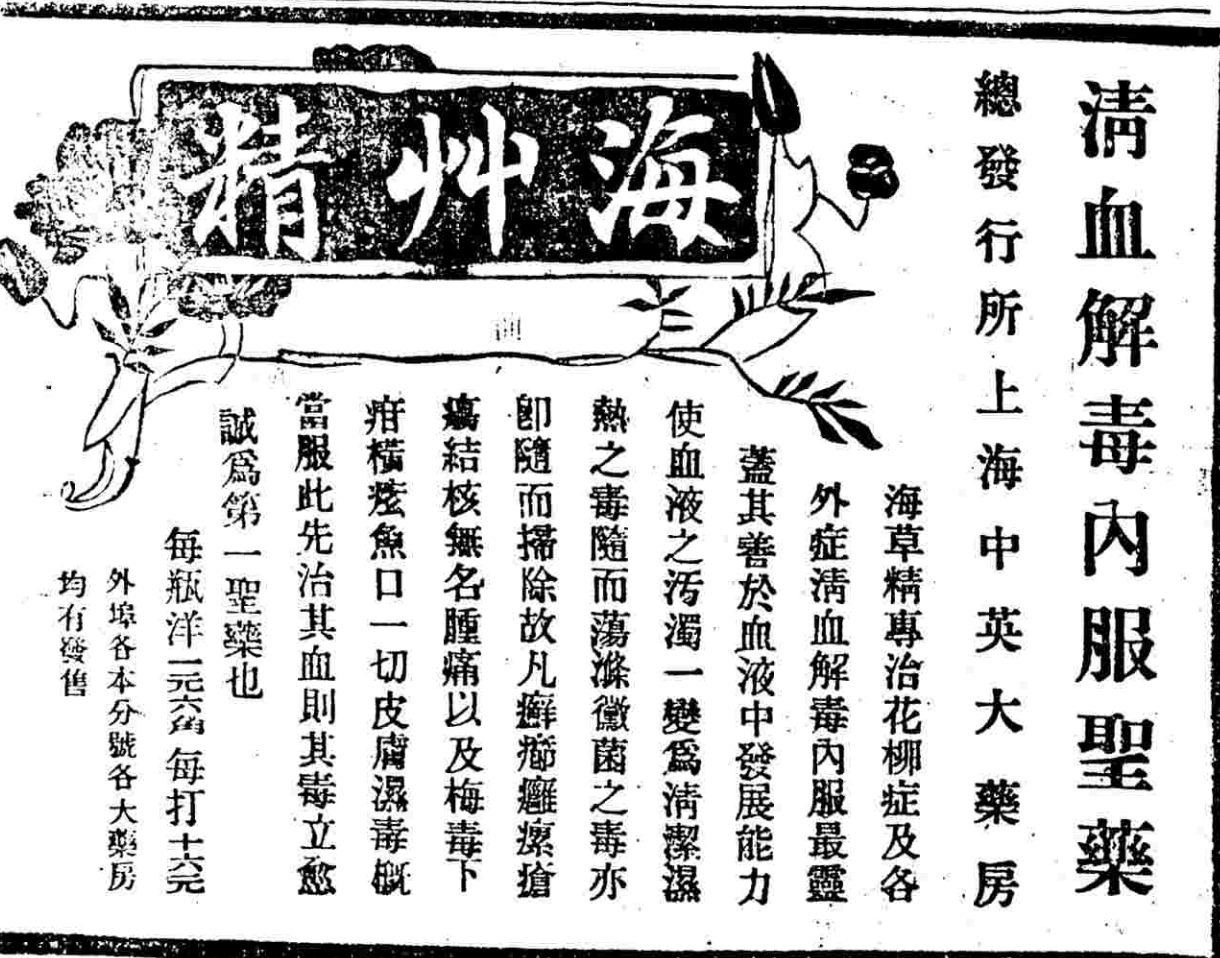 清血解毒內服聖藥
總發行所上海中英大藥房
海艸精
海草精專治花柳症及各
外症清血解毒內服最靈
蓋其善於血液中發展能力
使血液之汚濁一變爲清潔濕
熱之毒隨而蕩滌黴菌之毒亦
卽隨而掃除故凡癬癤癰瘰瘡
瘍結核無名腫痛以及梅毒下
疳橫痃魚口一切皮膚濕毒概
當服此先治其血則其毒立愈
誠爲第一聖藥也
每瓶洋一元六角每打十六元
外埠各本分號各大藥房
均有發售